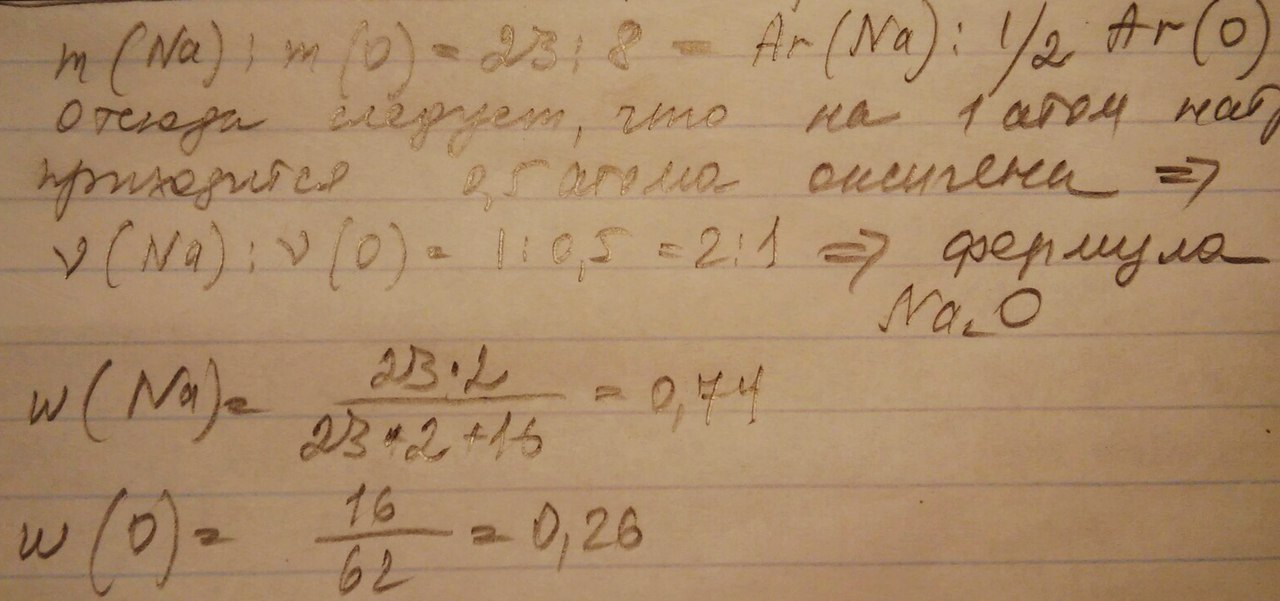 m(Na) : m(O) = 23 : 8 = Ar(Na) : 1/2 Ar(O)
Отсюда следует, что на 1 атом натр
приходится 0,5 атома оксигена =>
ν(Na) : ν(O) = 1 : 0,5 = 2 : 1 => формула
Na₂O
w(Na) = 23·2 / 23·2+16 = 0,74
w(O) = 16 / 62 = 0,26